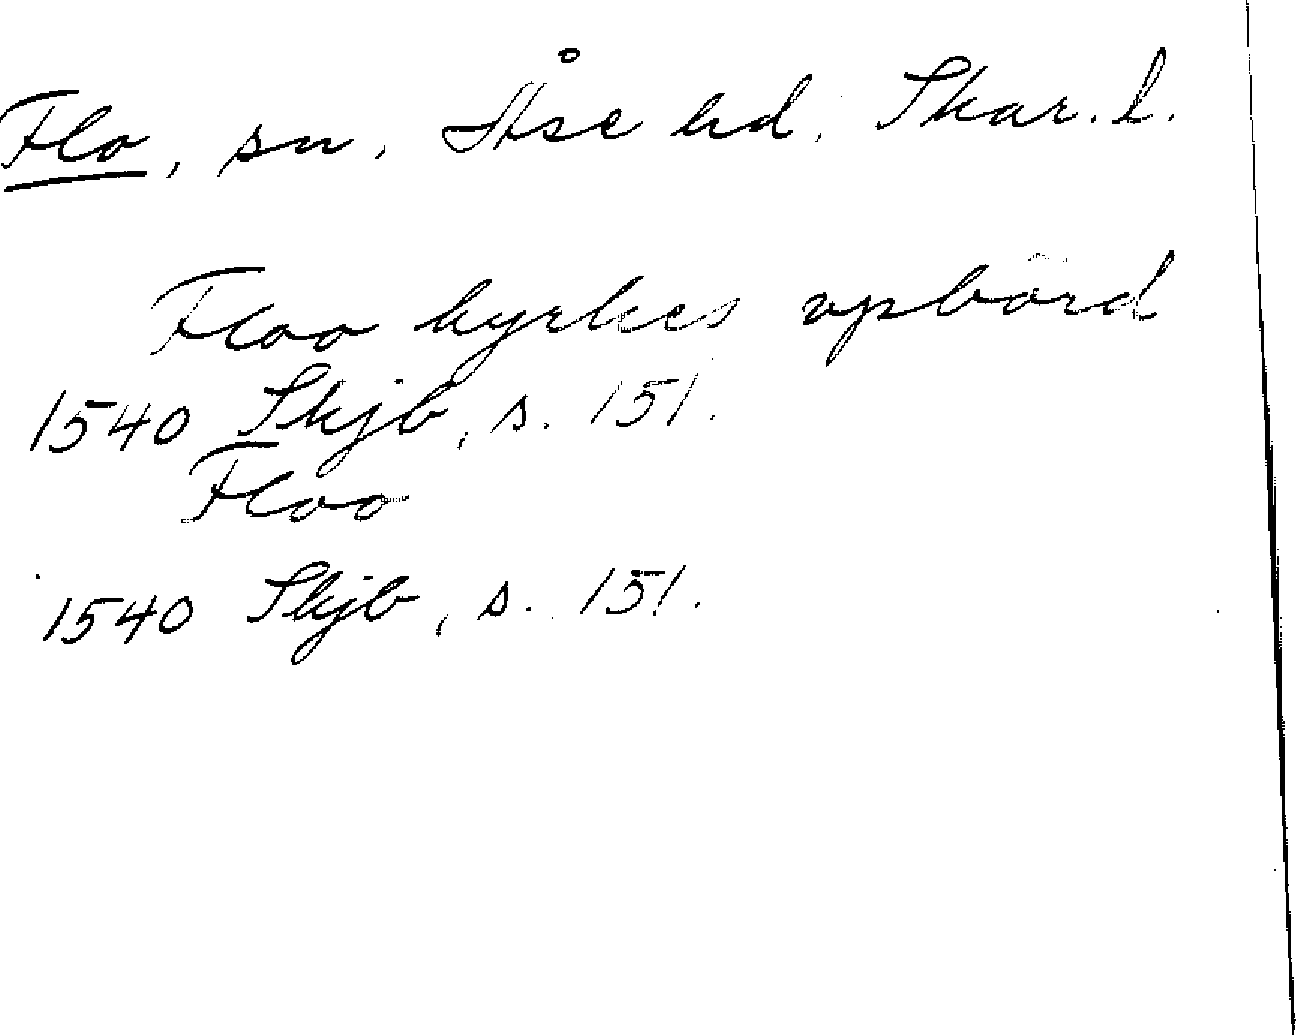 Flo, sn, Åse hd, Skar. l.
Floo kyrkes vpbörd
1540 Skjb, s. 151.
Floo
1540 Skjb, s. 151.